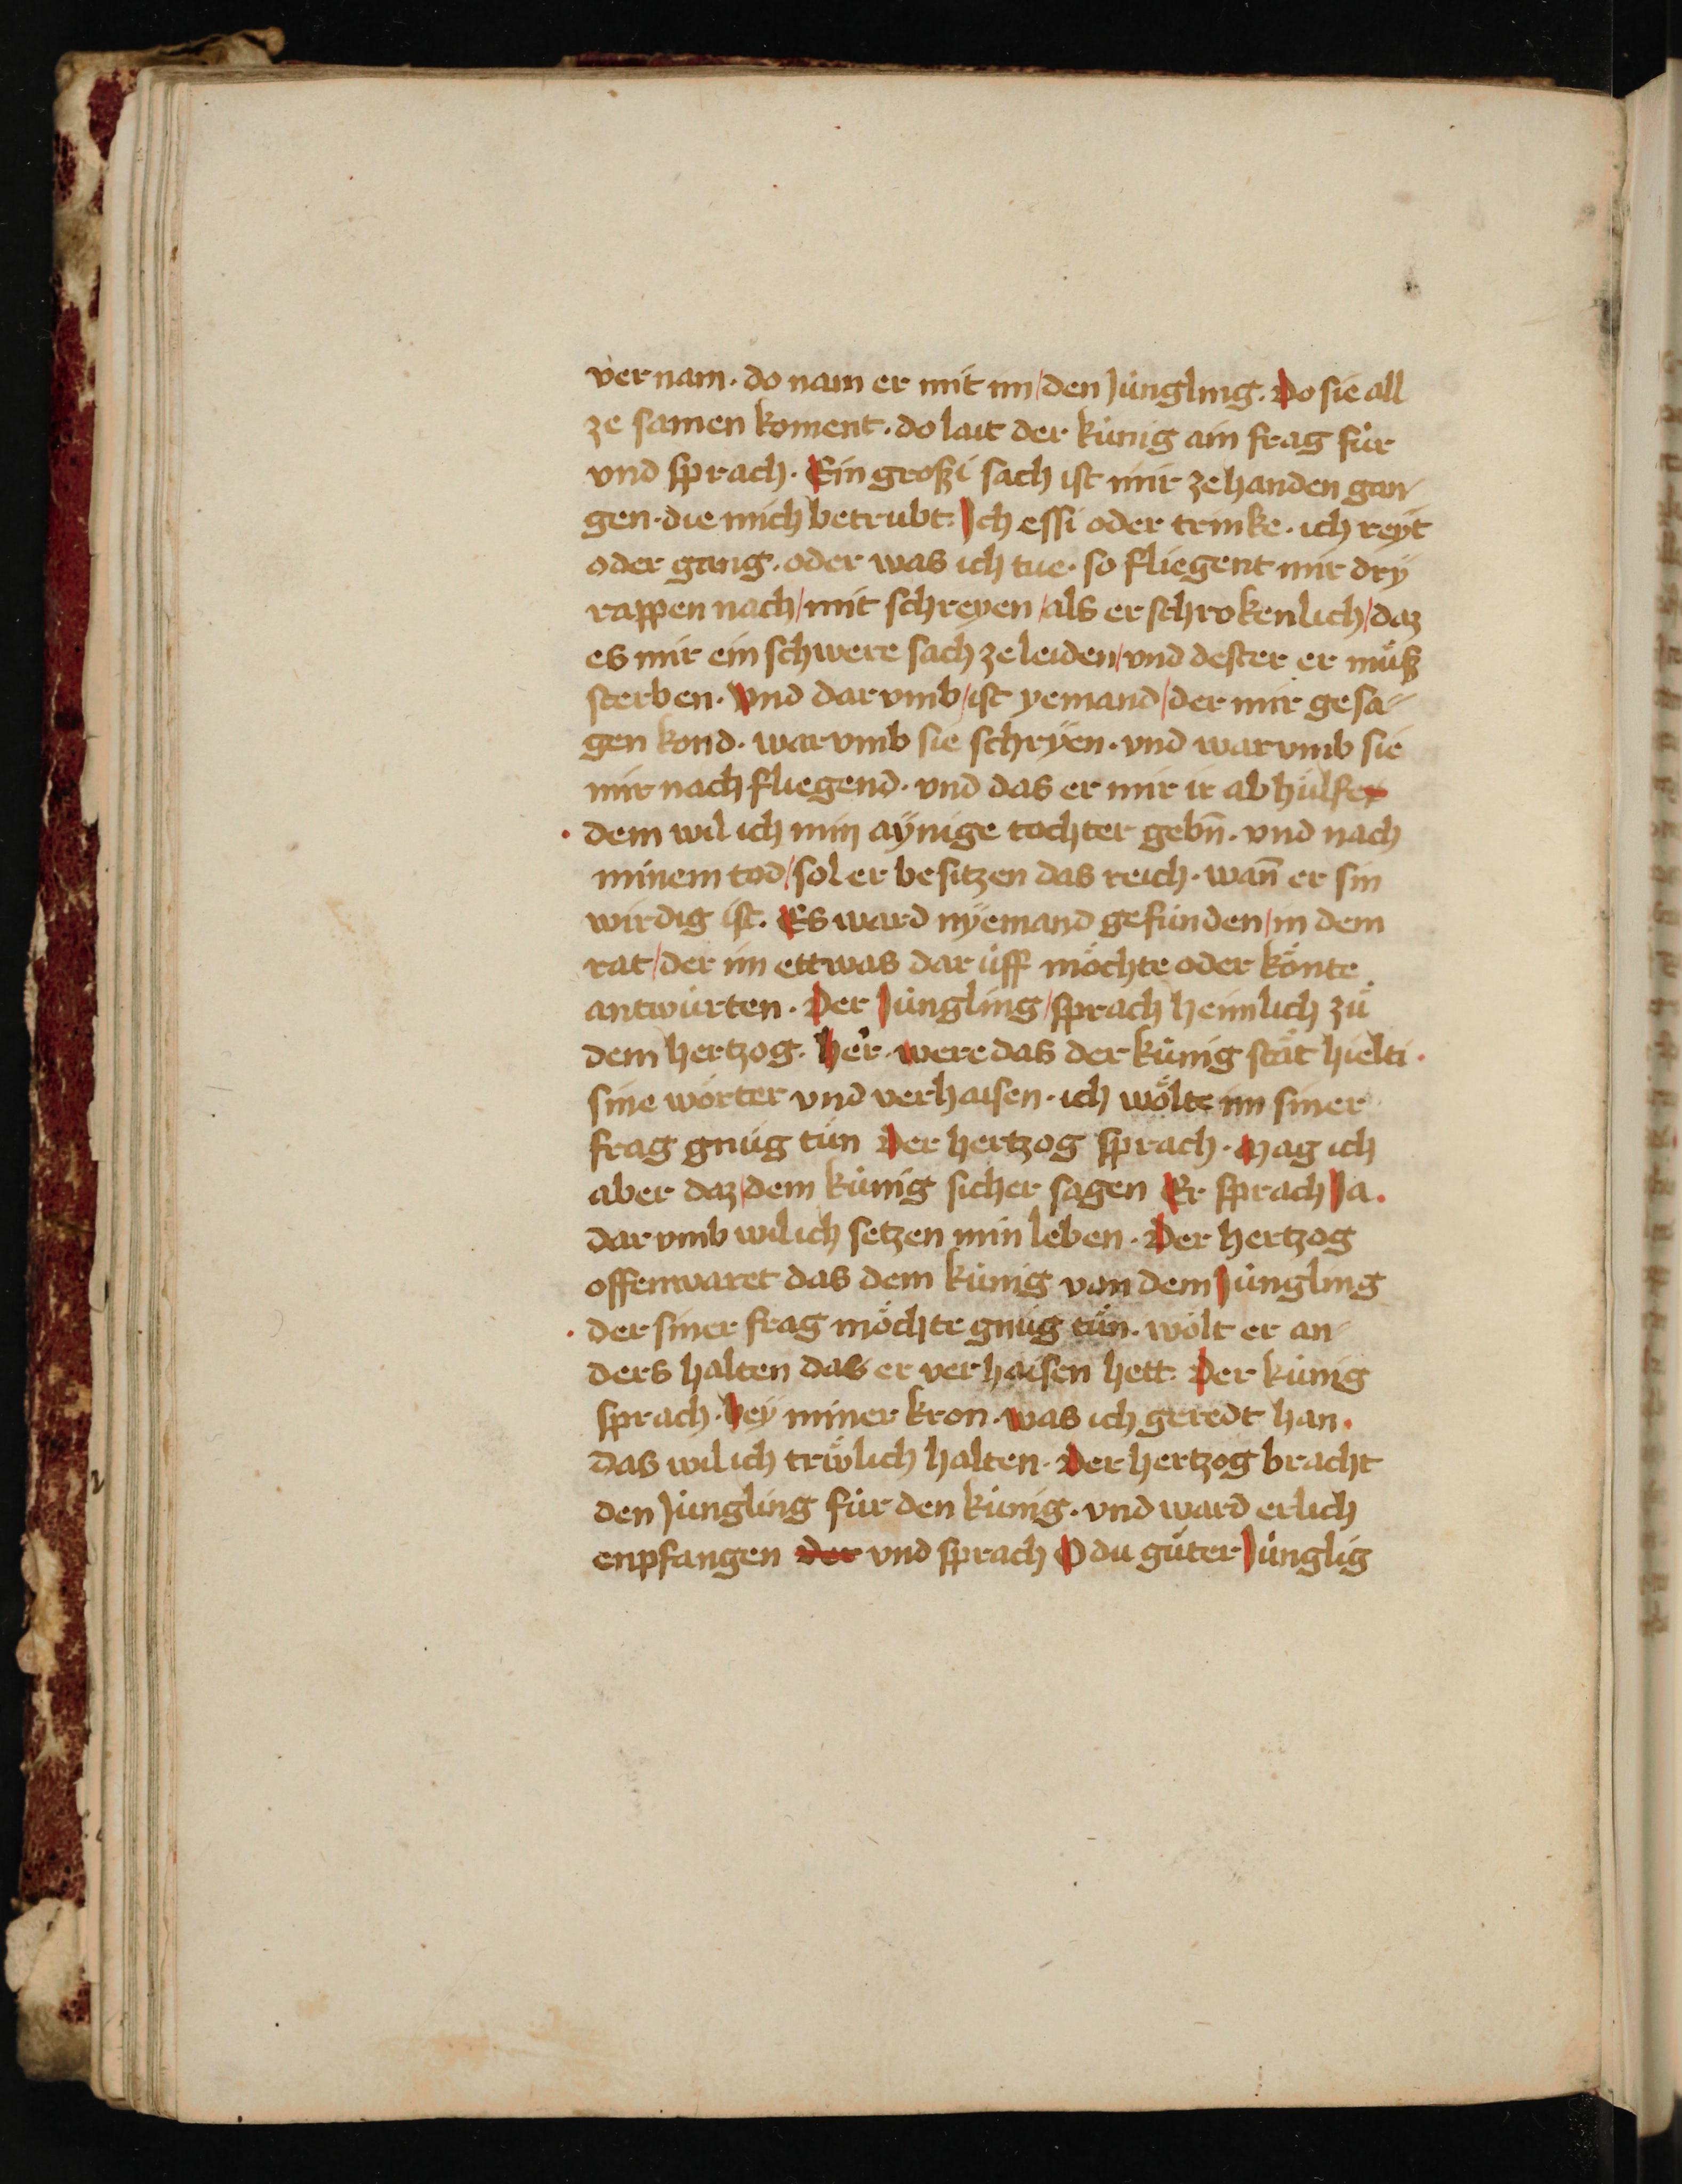 vernam · do nam er mit im / den Jüngling · Do sie all
ze samen koment · do lait der künig ain frag für
vnd sprach · Ein großi sach ist mir ze handen gan-
gen · die mich betrubt · Ich essi oder trinke · ich reyt
oder gang · oder was ich tue · so fliegent mir dry
rappen nach / mit schreyen / als erschrokenlich / daz
es mir ein schwere sach ze leiden / vnd dester er müß
sterben · Vnd dar vmb / ist yemand / der mir gesa-
gen kond · warvmb sie schryen · vnd warvmb sie
mir nach fliegend · vnd das er mir ir ab hulfe
· dem wil ich min aynige tochter gebn̄ · vnd nach
minem tod / sol er besitzen das reich · wan̄ er sin
wirdig ist · Es ward nyemand gefunden / in dem
rat / der im ettwas dar uff möchte oder könte
antwürten · Der Jüngling / sprach heimlich zü
dem hertzog · her · were das der künig stät hielti ·
sine wörter vnd verhaisen · ich wölte im siner
frag gnüg tün Der hertzog sprach · Mag ich
aber daz / dem künig sicher sagen Er sprach Ja ·
dar vmb wil ich setzen min leben · Der hertzog
offenwaret das dem künig von dem Jüngling
· der siner frag möchte gnüg tün · wölt er an-
ders halten das er verhaisen hett · Der künig
sprach · bey miner kron · was ich geredt han ·
das wil ich trẅlich halten · Der hertzog bracht
den Jüngling für den künig · vnd ward erlich
enpfangen der vnd sprach O du güter Jünglig